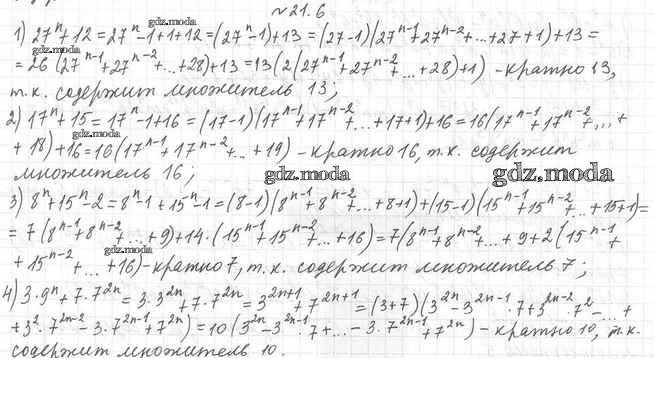 № 21.6
gdz.moda
1) 27ⁿ+12 = 27ⁿ-1+1+12 = (27ⁿ-1)+13 = (27-1)(27ⁿ⁻¹+27ⁿ⁻²+...+27+1)+13 =
gdz.moda
= 26(27ⁿ⁻¹+27ⁿ⁻²+...+28)+13 = 13(2(27ⁿ⁻¹+27ⁿ⁻²+...+28)+1) - кратно 13,
т.к. содержит множитель 13;
2) 17ⁿ+15 = 17ⁿ-1+16 = (17-1)(17ⁿ⁻¹+17ⁿ⁻²+...+17+1)+16 = 16(17ⁿ⁻¹+17ⁿ⁻²+...+
gdz.moda
+ 18)+16 = 16(17ⁿ⁻¹+17ⁿ⁻²+...+19) - кратно 16, т.к. содержит
множитель 16;
gdz.moda
gdz.moda
3) 8ⁿ+15ⁿ-2 = 8ⁿ-1+15ⁿ-1 = (8-1)(8ⁿ⁻¹+8ⁿ⁻²+...+8+1)+(15-1)(15ⁿ⁻¹+15ⁿ⁻²+...+15+1) =
= 7(8ⁿ⁻¹+8ⁿ⁻²+...+9)+14·(15ⁿ⁻¹+15ⁿ⁻²+...+16) = 7(8ⁿ⁻¹+8ⁿ⁻²+...+9+2(15ⁿ⁻¹+
gdz.moda
+ 15ⁿ⁻²+...+16) - кратно 7, т.к. содержит множитель 7;
4) 3·9ⁿ+7·7²ⁿ = 3·3²ⁿ+7·7²ⁿ = 3²ⁿ⁺¹+7²ⁿ⁺¹ = (3+7)(3²ⁿ-3²ⁿ⁻¹·7+3²ⁿ⁻²·7²-...+
+3²·7²ⁿ⁻²-3·7²ⁿ⁻¹+7²ⁿ) = 10(3²ⁿ-3²ⁿ⁻¹·7+...-3·7²ⁿ⁻¹+7²ⁿ) - кратно 10, т.к.
содержит множитель 10.